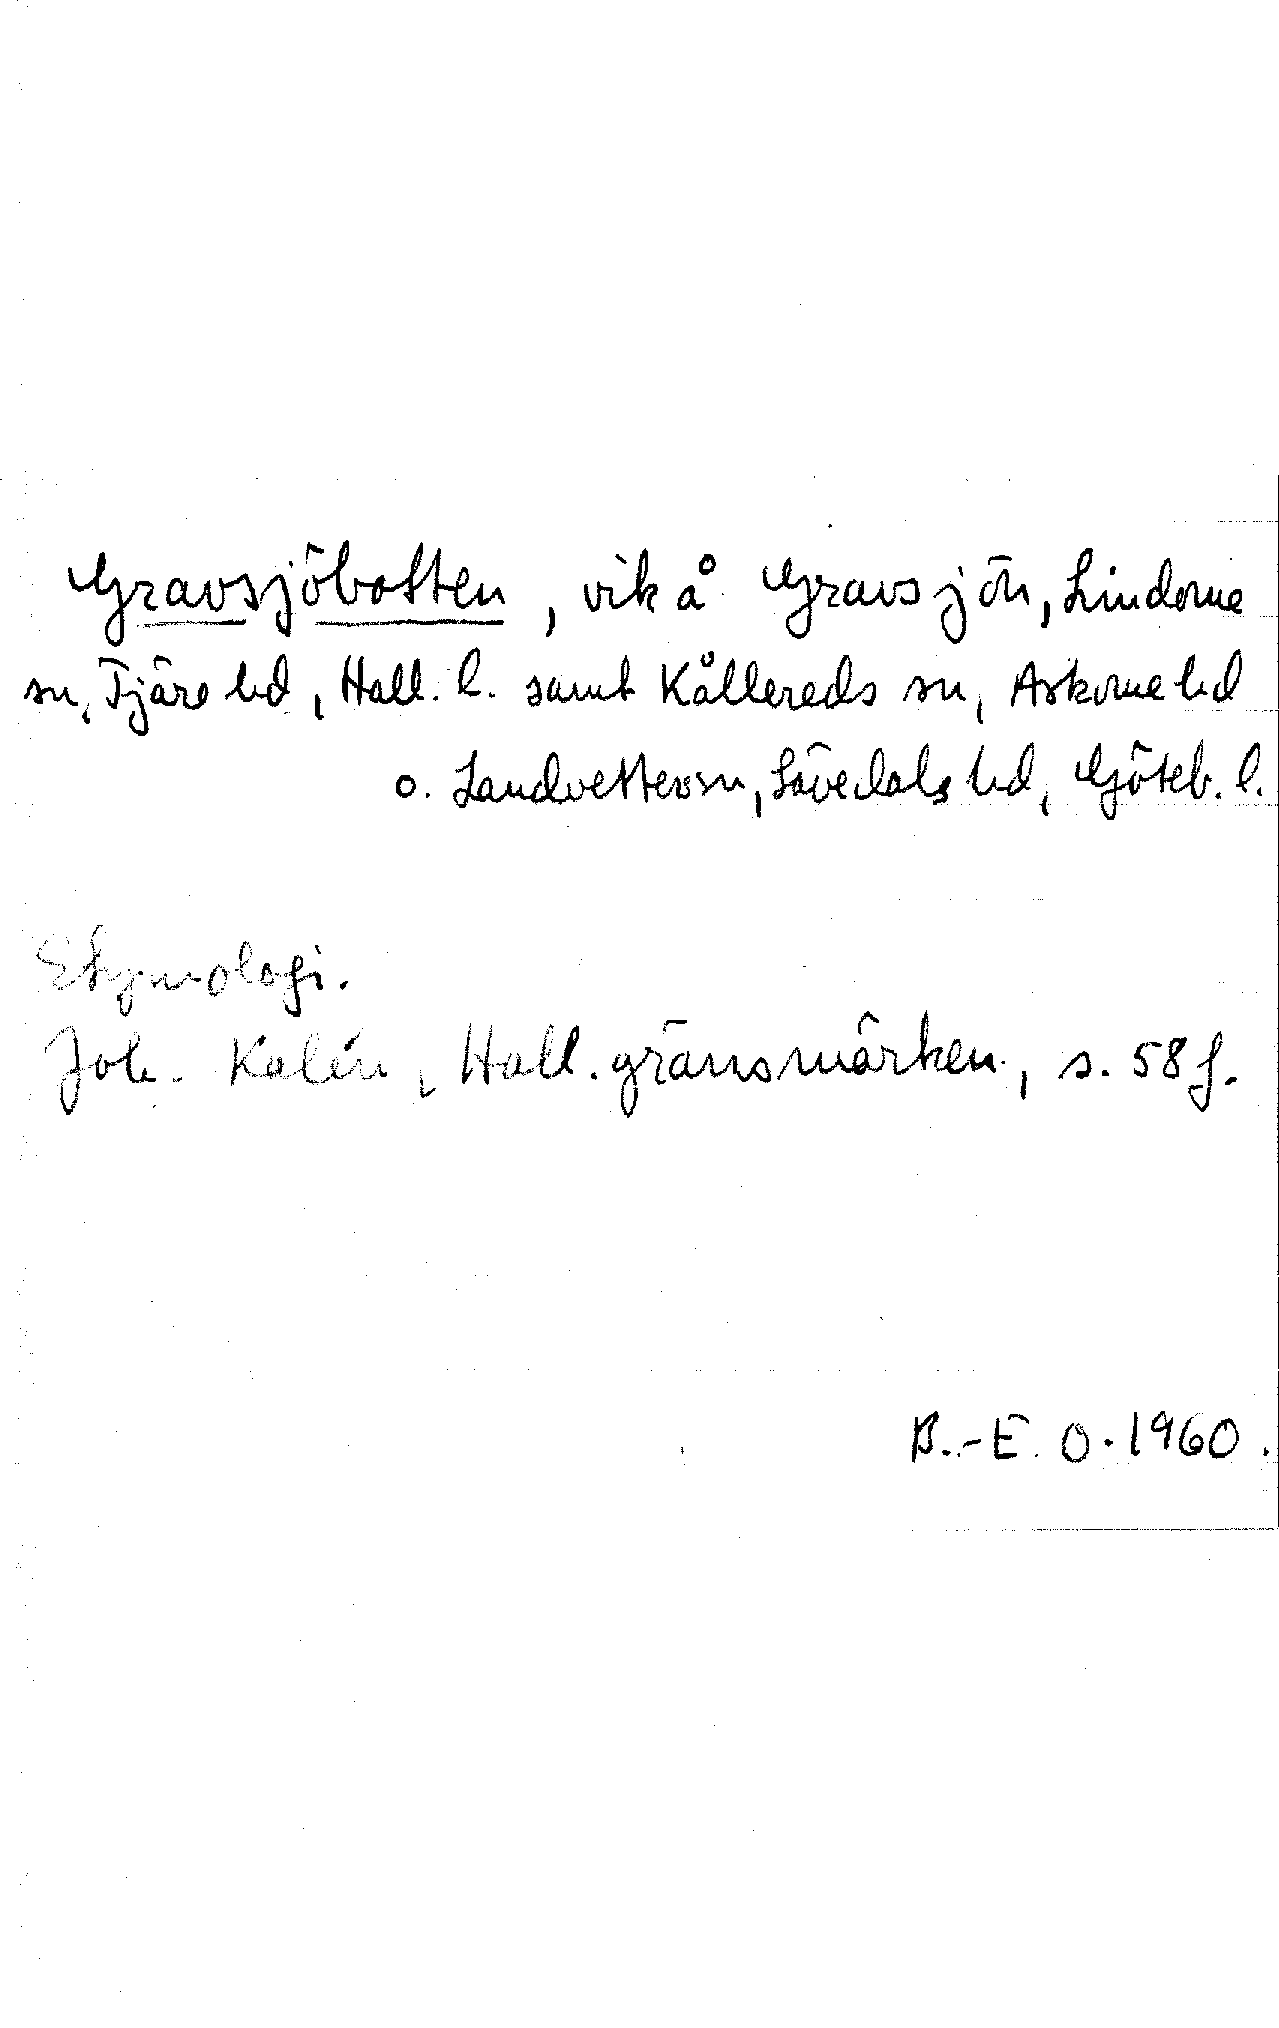 Gravsjöbotten, vik å Gravsjön, Lindome
sn, Fjäre hd, Hall. l. samt Kållereds sn, Askome hd
o. Landvetter sn, Sävedals hd, Göteb. l.
Etymologi.
Joh. Kalén, Hall. gränsmärken, s. 58 f.
B.-E. O. 1960.